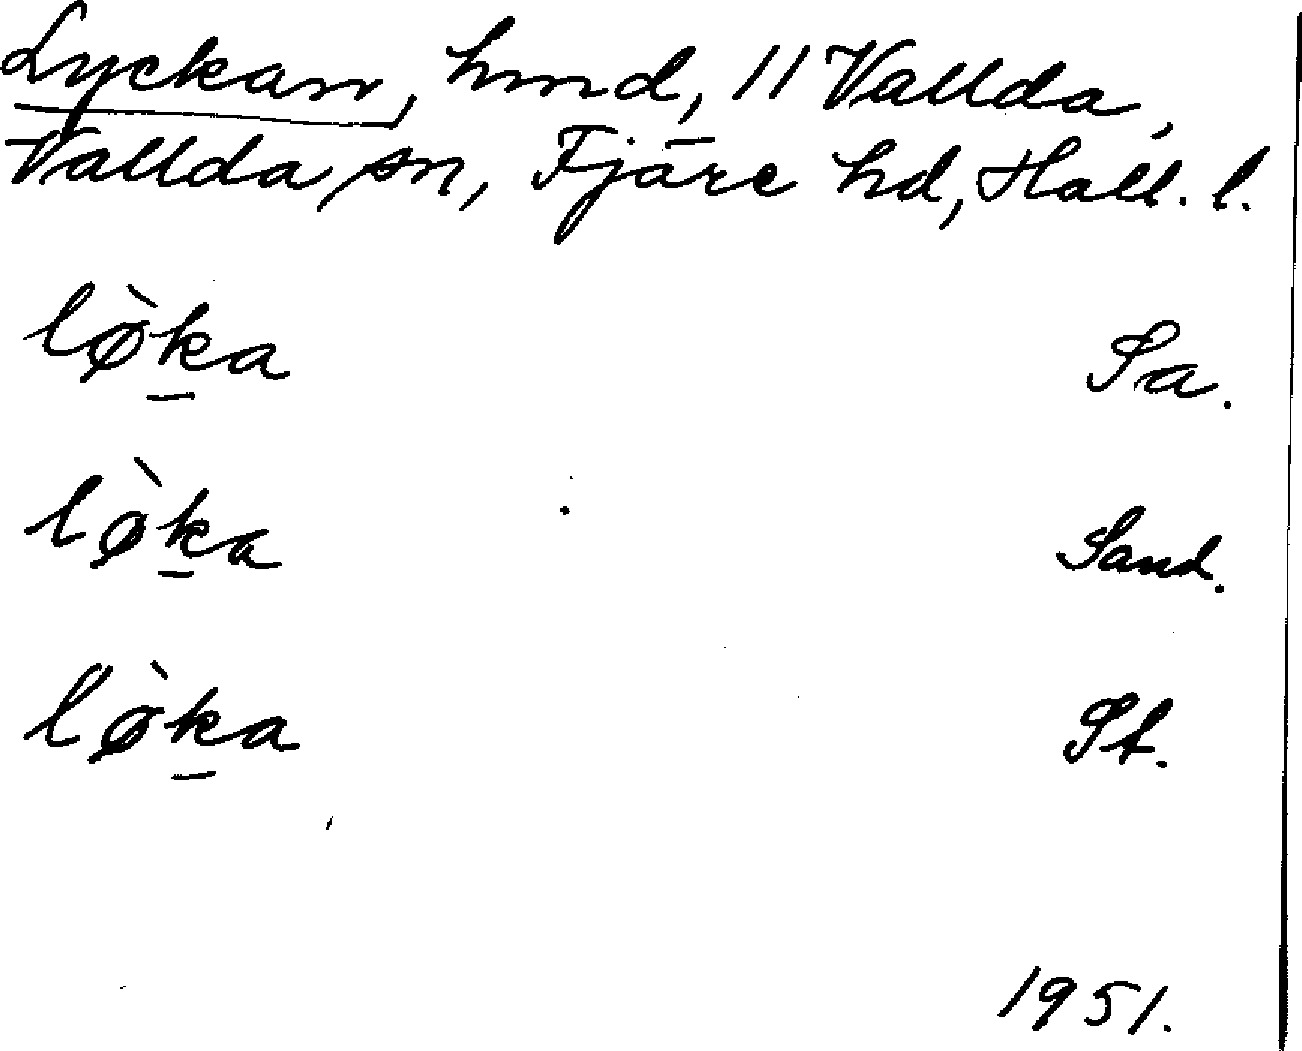 Lyckan, hmd, 11 Vallda,
Vallda sn, Fjäre hd, Hall. l.
lø̀k̠a Sa.
lø̀k̠a Sand.
lø̀k̠a St.
1951.